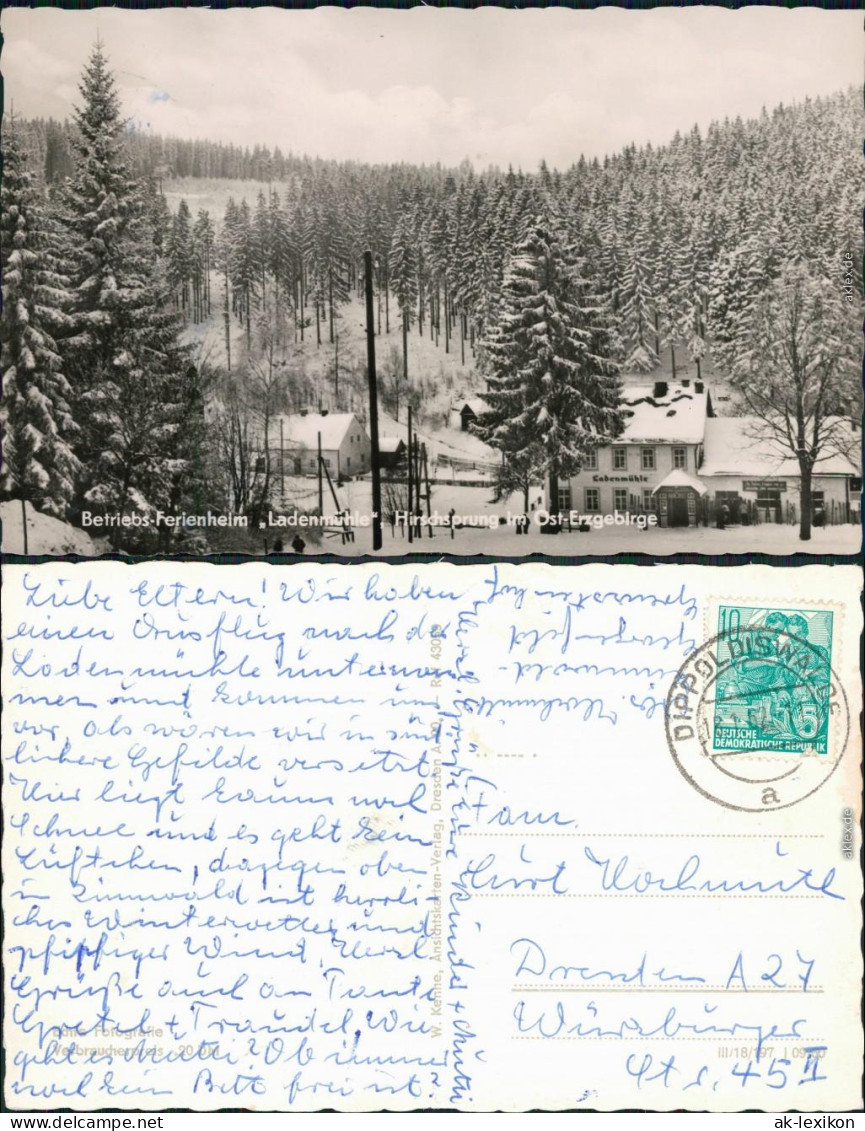 Ladenmühle
Betriebs-Ferienheim „Ladenmühle“ Hirschsprung im Ost-Erzgebirge
Liebe Eltern! Wir haben
einen Ausflug nach de
Ladenmühle unternom
men und kommen uns
vor, als wären wir in süd
lichere Gefilde versetzt
Hier liegt kaum noch
Schnee und es geht kein
Lüftchen, dagegen oben
in Zinnwald ist herrli
ches Winterwetter und
pfiffiger Wind. Herzl.
Grüße auch an Tante
Gretel + Traudel, Wie
geht es Mutti? Ob immer
noch ein Bett frei ist?
Herzl. Grüße Eure Kinder + Mutti
Echte Fotografie
Verbraucherpreis -,20 DM
W. Kenne, Ansichtskarten-Verlag, Dresden A
Zinnwald-
Georgenfeld
10
5
DEUTSCHE
DEMOKRATISCHE REPUBLIK
DIPPOLDISWALDE
a
Fam.
Kurt Hochmuth
Dresden A 27
Würzburger
Str. 45 II
III/18/197
aklex.de
aklex.de
aklex.de
aklex.de
www.ak-ansichtskarten.de
ak-lexikon